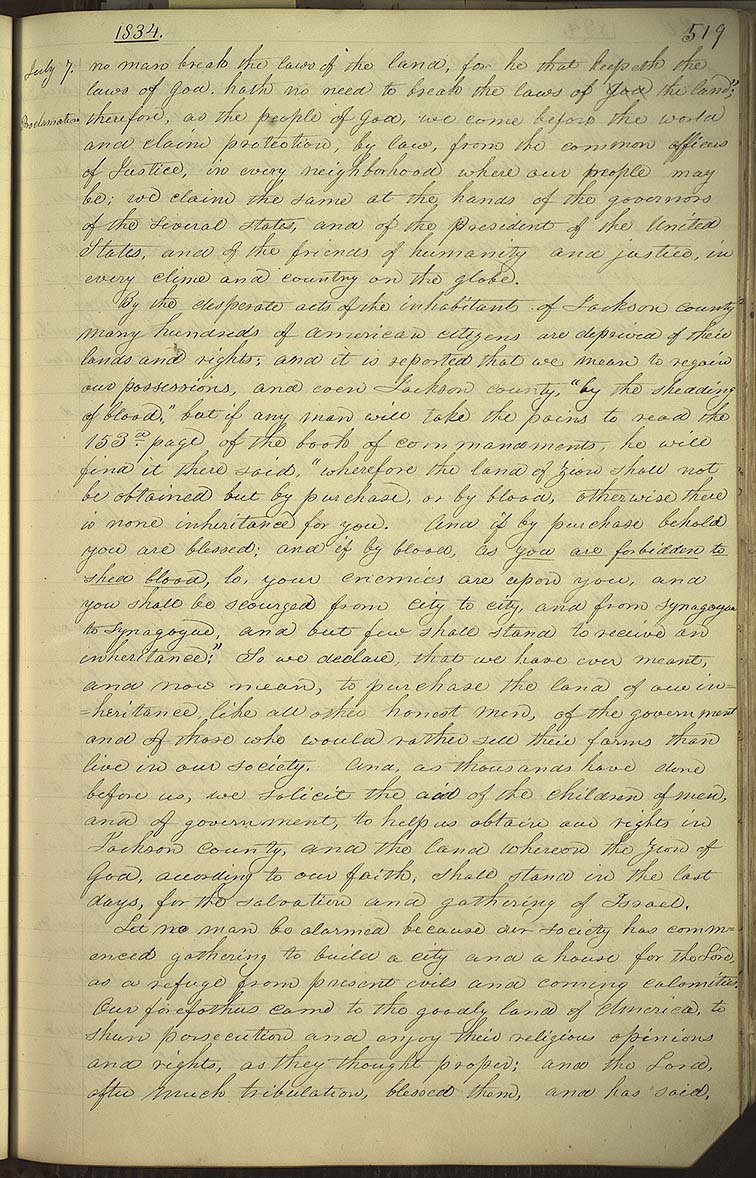 1834.
519
July 7.
no man break the laws of the land, for he that keepeth the
laws of God. hath no need to break the laws of God the land";
Proclamation
therefore, as the people of God, we come before the world
and claim protection, by law, from the common officers
of Justice, in every neighborhood where our people may
be; we claim the same at the hands of the governors
of the several states, and of the president of the United
States, and of the friends of humanity and justice, in
every clime and country on the globe.
By the desperate acts of the inhabitants of Jackson county
many hundreds of american citizens are deprived of their
lands and rights; and it is reported that we mean to regain
our possessions, and even Jackson county, "by the shedding
of blood;" but if any man will take the pains to read the
153d page of the book of commandments, he will
find it there said, "wherefore the land of Zion shall not
be obtained but by purchase, or by blood, otherwise there
is none inheritance for you. And if by purchase behold
you are blessed; and if by blood, as you are forbidden to
shed blood, lo, your enemies are upon you, and
you shall be scourged from city to city, and from synagogue
to synagogue, and but few shall stand to receive an
inheritance." So we declare, that we have ever meant,
and now mean, to purchase the land of our in=
=heritance, like all other honest men, of the government
and of those who would rather sell their farms than
live in our society. And, as thousands have done
before us, we solicit the aid of the children of men,
and of government, to help us obtain our rights in
Jackson county, and the land whereon the Zion of
God, according to our faith, shall stand in the last
days, for the salvation and gathering of Israel.
Let no man be alarmed because our society has comm=
enced gathering to build a city and a house for the Lord,
as a refuge from present evils and coming calamities.
Our forefathers came to the goodly land of America, to
shun persecution and enjoy their religious opinions
and rights, as they thought proper; and the Lord,
after much tribulation, blessed them, and has said,